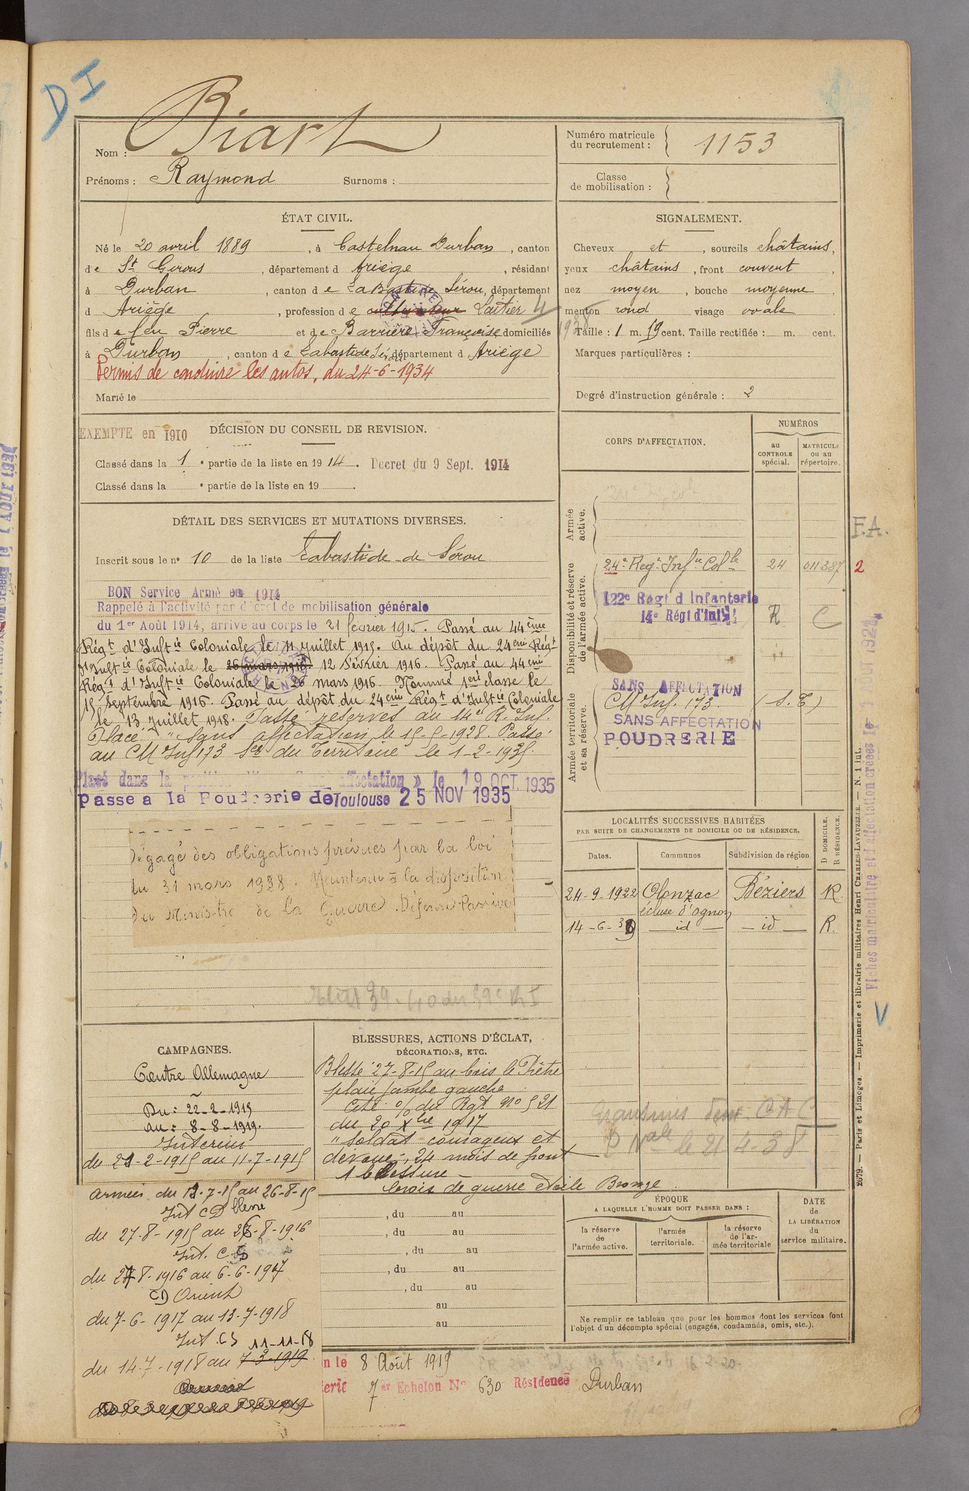 DI
Nom : Biart
Prénoms : Raymond Surnoms :
Numéro matricule du recrutement : 1153
Classe de mobilisation :
ÉTAT CIVIL.
Né le 20 avril 1889, à Castelnau Durban, canton
de St Girons, département d Ariège, résidant
à Durban, canton de LaBastide Sérou, département
d Ariège, profession de cultivateur Laitier
fils de feu Pierre et de Barrière Françoise domiciliés
à Durban, canton de Labastide Sé, département d Ariège
Permis de conduire les autos, du 24-6-1934
Marié le
SIGNALEMENT.
Cheveux et, sourcils châtains,
yeux châtains, front couvert,
nez moyen, bouche moyenne
menton rond visage ovale
Taille : 1 m. 59 cent. Taille rectifiée : m. cent.
Marques particulières :
Degré d'instruction générale : 2
EXEMPTE en 1910
DÉCISION DU CONSEIL DE REVISION.
Classé dans la 1e partie de la liste en 1914. Décret du 9 Sept. 1914
Classé dans la e partie de la liste en 19
DÉTAIL DES SERVICES ET MUTATIONS DIVERSES.
Inscrit sous le n° 10 de la liste Labastide de Sérou
BON Service Armé en 1914
Rappelé à l'activité par décret de mobilisation générale
du 1er Août 1914, arrivé au corps le 21 février 1915. Passé au 44ème
Régt d'Inftie Coloniale le 11 juillet 1915. Au dépôt du 24eme Régt
d'Inftie Coloniale le 26 mars 1916 12 Février 1916. Passé au 44eme
Régt d'Inftie Coloniale le 26 mars 1916. Nommé 1ère classe le
15 Septembre 1916. Passé au dépôt du 24eme Régt d'Inftie Coloniale
le 13 Juillet 1918. Passé réserves au 14e R. Inf.
Placé "sans affectation le 15-5-1928. Passé
au CM Inf 173 Son du Territoire le 1-2-1935
Placé dans la position affectation » le 19 OCT. 1935
passe a la Poudrerie de Toulouse 25 NOV 1935
Dégagé des obligations prévues par la loi
du 31 mars 1928. Maintenu à la disposition
du Ministre de la Guerre. Défense Passive
CORPS D'AFFECTATION.
NUMÉROS
au CONTROLE spécial.
MATRICULE ou au répertoire.
Armée active.
Disponibilité et réserve de l'armée active.
24e Régt Infie Colle 24 011387 2
122e Régt d'Infanterie
14e Régt d'Inf. R C
Armée territoriale et sa réserve.
SANS AFFECTATION
CM Inf. 173. (S. T)
SANS AFFECTATION
POUDRERIE
F.A.
LOCALITÉS SUCCESSIVES HABITÉES
PAR SUITE DE CHANGEMENTS DE DOMICILE OU DE RÉSIDENCE.
Dates. Communes Subdivision de région D DOMICILE. R RÉSIDENCE.
24-9-1922 Olonzac Béziers R
écluse d'ognon
14-6-39 id id R.
CAMPAGNES.
Contre Allemagne
Du : 22-2-1915
au : 8-8-1919.
Intérieur
du 21-2-1915 au 11-7-1915
Armées du 12-7-15 au 26-8-15
Int CD blessé
du 27-8-1915 au 26-8-1916
Int. CS
du 27-8-1916 au 6-6-1917
CD Orient
du 7-6-1917 au 13-7-1918
Int. CS 11-11-18
du 14-7-1918 au 7-3-1919
BLESSURES, ACTIONS D'ÉCLAT,
DÉCORATIONS, ETC.
Blessé 27-8-15 au bois le Prêtre
plaie jambe gauche
Cité O/ du Rgt No 521
du 20 Xbre 1917
"Soldat courageux et
dévoué, 24 mois de front
1 blessure
Croix de guerre étoile Bronze
, du au
, du au
, du au
, du au
, du au
au
au
ÉPOQUE
A LAQUELLE L'HOMME DOIT PASSER DANS :
la réserve de l'armée active.
l'armée territoriale.
la réserve de l'armée territoriale
DATE de LA LIBÉRATION du service militaire.
Ne remplir ce tableau que pour les hommes dont les services font
l'objet d'un décompte spécial (engagés, condamnés, omis, etc.).
n le 8 Août 1919
7er Echelon N° 630 Résidence Durban
2679. — Paris et Limoges. — Imprimerie et librairie militaires Henri CHARLES-LAVAUZELLE. — N. 1 int.